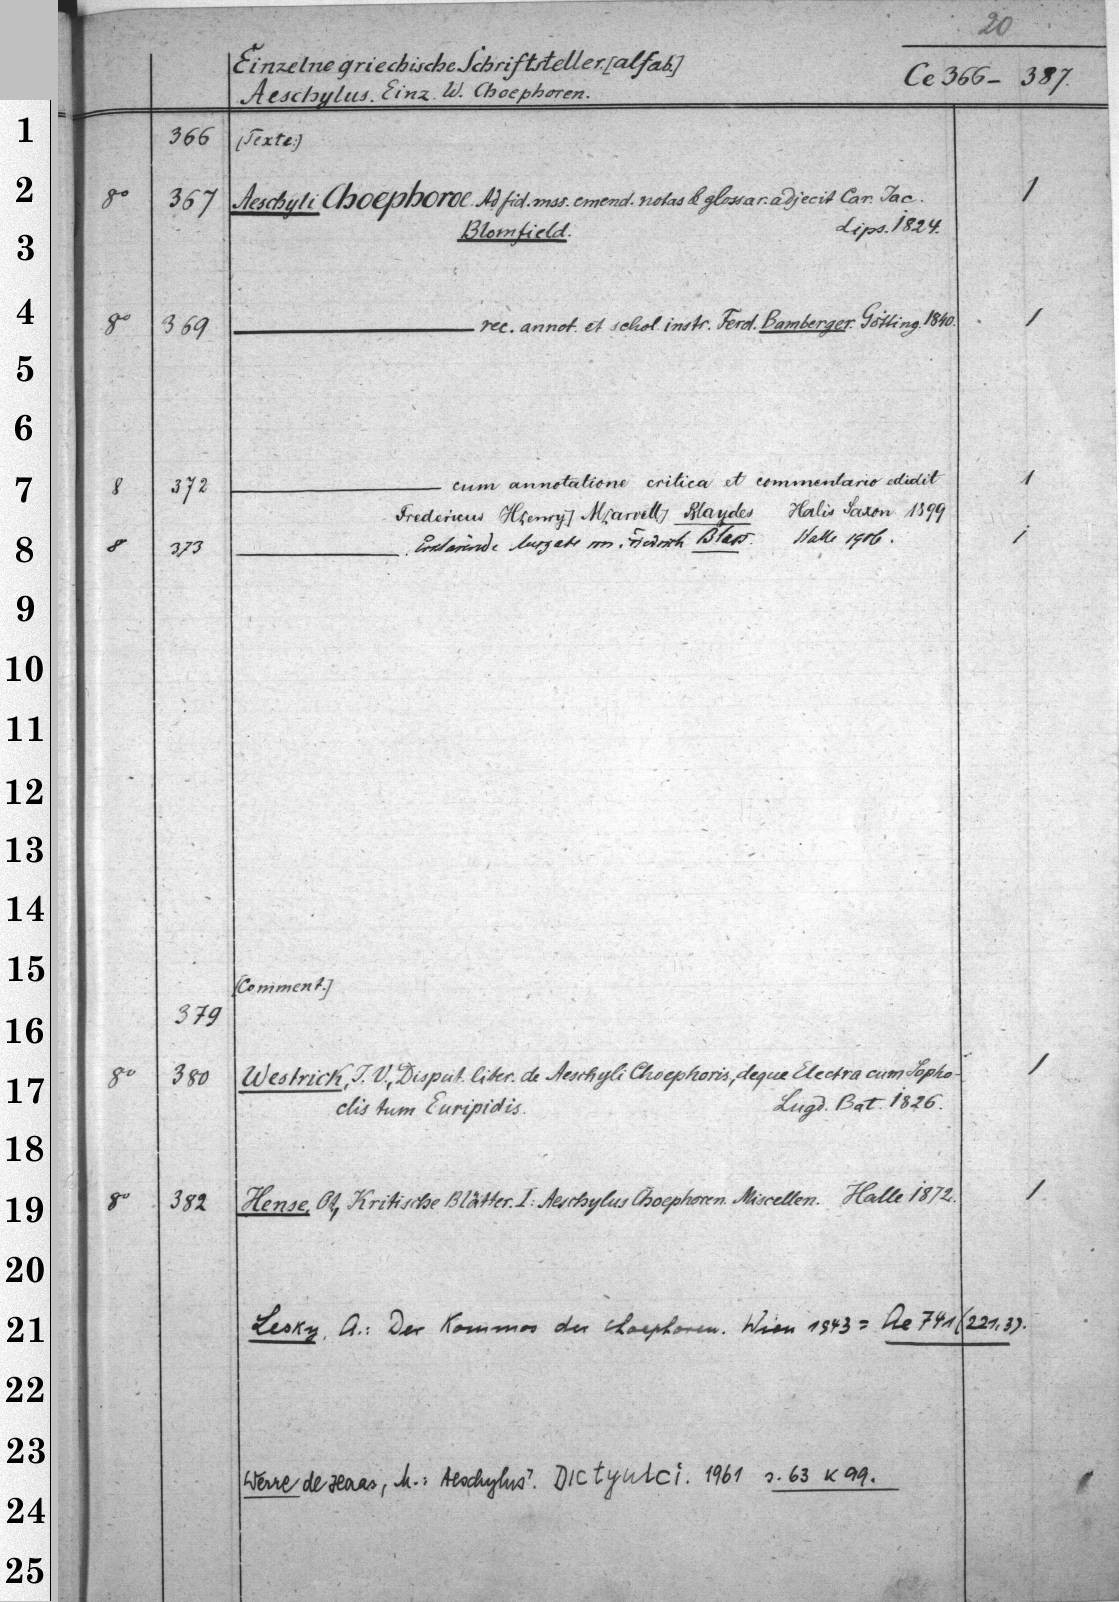 20
Einzelne griechische Schriftsteller. [alfab.]
Ce 366 - 387.
Aeschylus. Einz. W. Choephoren.
1
366 [Texte:]
2
8° 367 Aeschyli Choephoroe. Ad fid. mss. emend. notas & glossar. adjecit Car. Jac. 1
Blomfield. Lips. 1824.
3
4
8° 369 rec. annot. et schol. instr. Ferd. Bamberger. Götting. 1840. 1
5
6
7
8 372 cum annotatione critica et commentario edidit 1
Fredericus H[enry] M[arvell] Blaydes Halis Saxon 1899
8
8 373 Erklärende Ausgabe von Friedrich Blass. Halle 1906. 1
9
10
11
12
13
14
15
[Comment.]
379
16
8° 380 Westrick, J. V., Disput. liter. de Aeschyli Choephoris, deque Electra cum Sopho- 1
17
clis tum Euripidis. Lugd. Bat. 1826.
18
8° 382 Hense, O., Kritische Blätter. I: Aeschylus Choephoren. Miscellen. Halle 1872. 1
19
20
21
Lesky, A.: Der Kommos der Choephoren. Wien 1943 = Ae 741 (221,3).
22
23
Werre de Haas, M.: Aeschylus'. Dictyulci. 1961 s. 63 K 99.
24
25